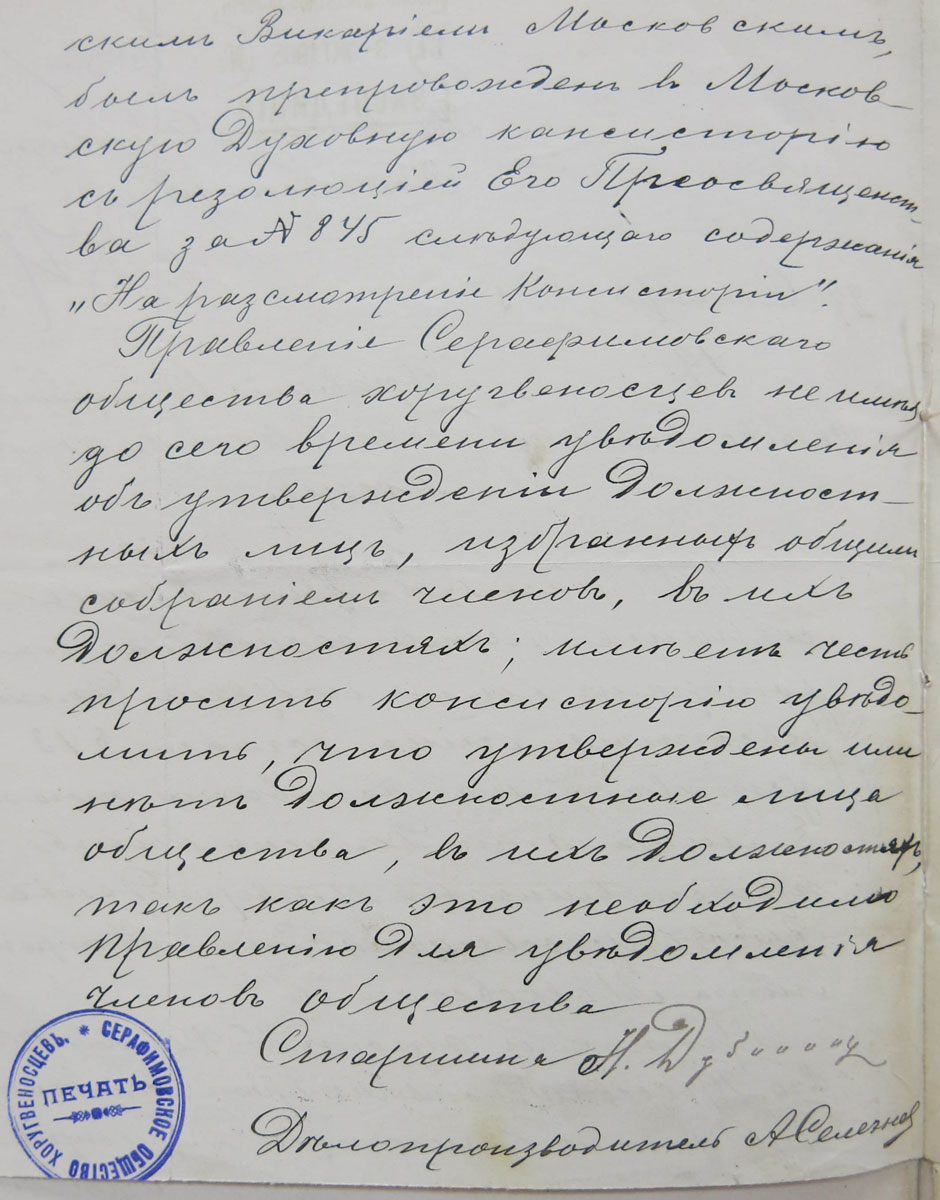 скимъ Викаріемъ Московскимъ,
былъ препровожденъ въ Москов-
скую Духовную кансисторію
съ резолюціей Его Преосвященст-
ва за № 845 слѣдующаго содержанія
„На разсмотреніе Консисторіи".
Правленіе Серафимовскаго
общества хоругвеносцевъ не имѣя
до сего времени увѣдомленія
объ утвержденіи Должност-
ныхъ лицъ, избранныхъ общимъ
собраніемъ членовъ, въ ихъ
Должностяхъ; имѣетъ честь
просить консисторію увѣдо-
мить, что утверждены или
нѣтъ Должностные лица
общества, въ ихъ Должностяхъ,
такъ какъ это необходимо
Правленію Для увѣдомленія
членовъ общества
Старшина Н.
Дѣлопроизводитель А Селезнев
СЕРАФИМОВСКОЕ ОБЩЕСТВО ХОРУГВЕНОСЦЕВЪ.
ПЕЧАТЬ